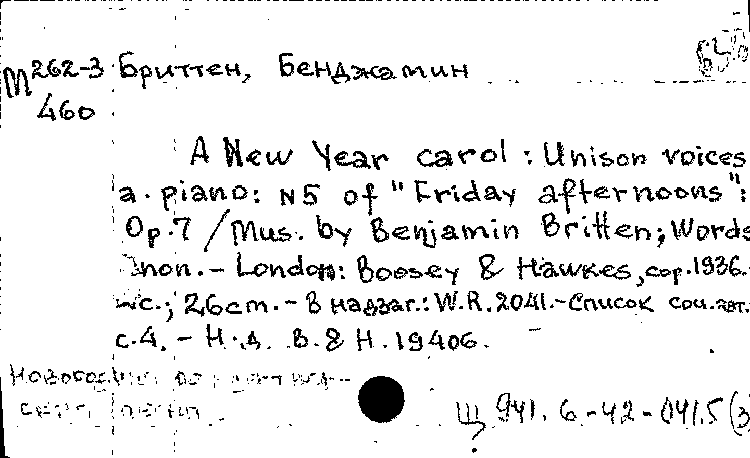 М 262-3 Бриттен, Бенджамин
460
A New Year carol : Unison voices
a. piano: N5 of "Friday afternoons":
Op.7 / Mus. by Benjamin Britten; Words
anon. - London: Boosey & Hawkes, cop.1936.
c.; 26cm. - В надзаг.: W.R. 2041. - Список соч. авт.
с.4. - Н.д. B. & H. 19406.
Щ 941.6-42-041.5(3